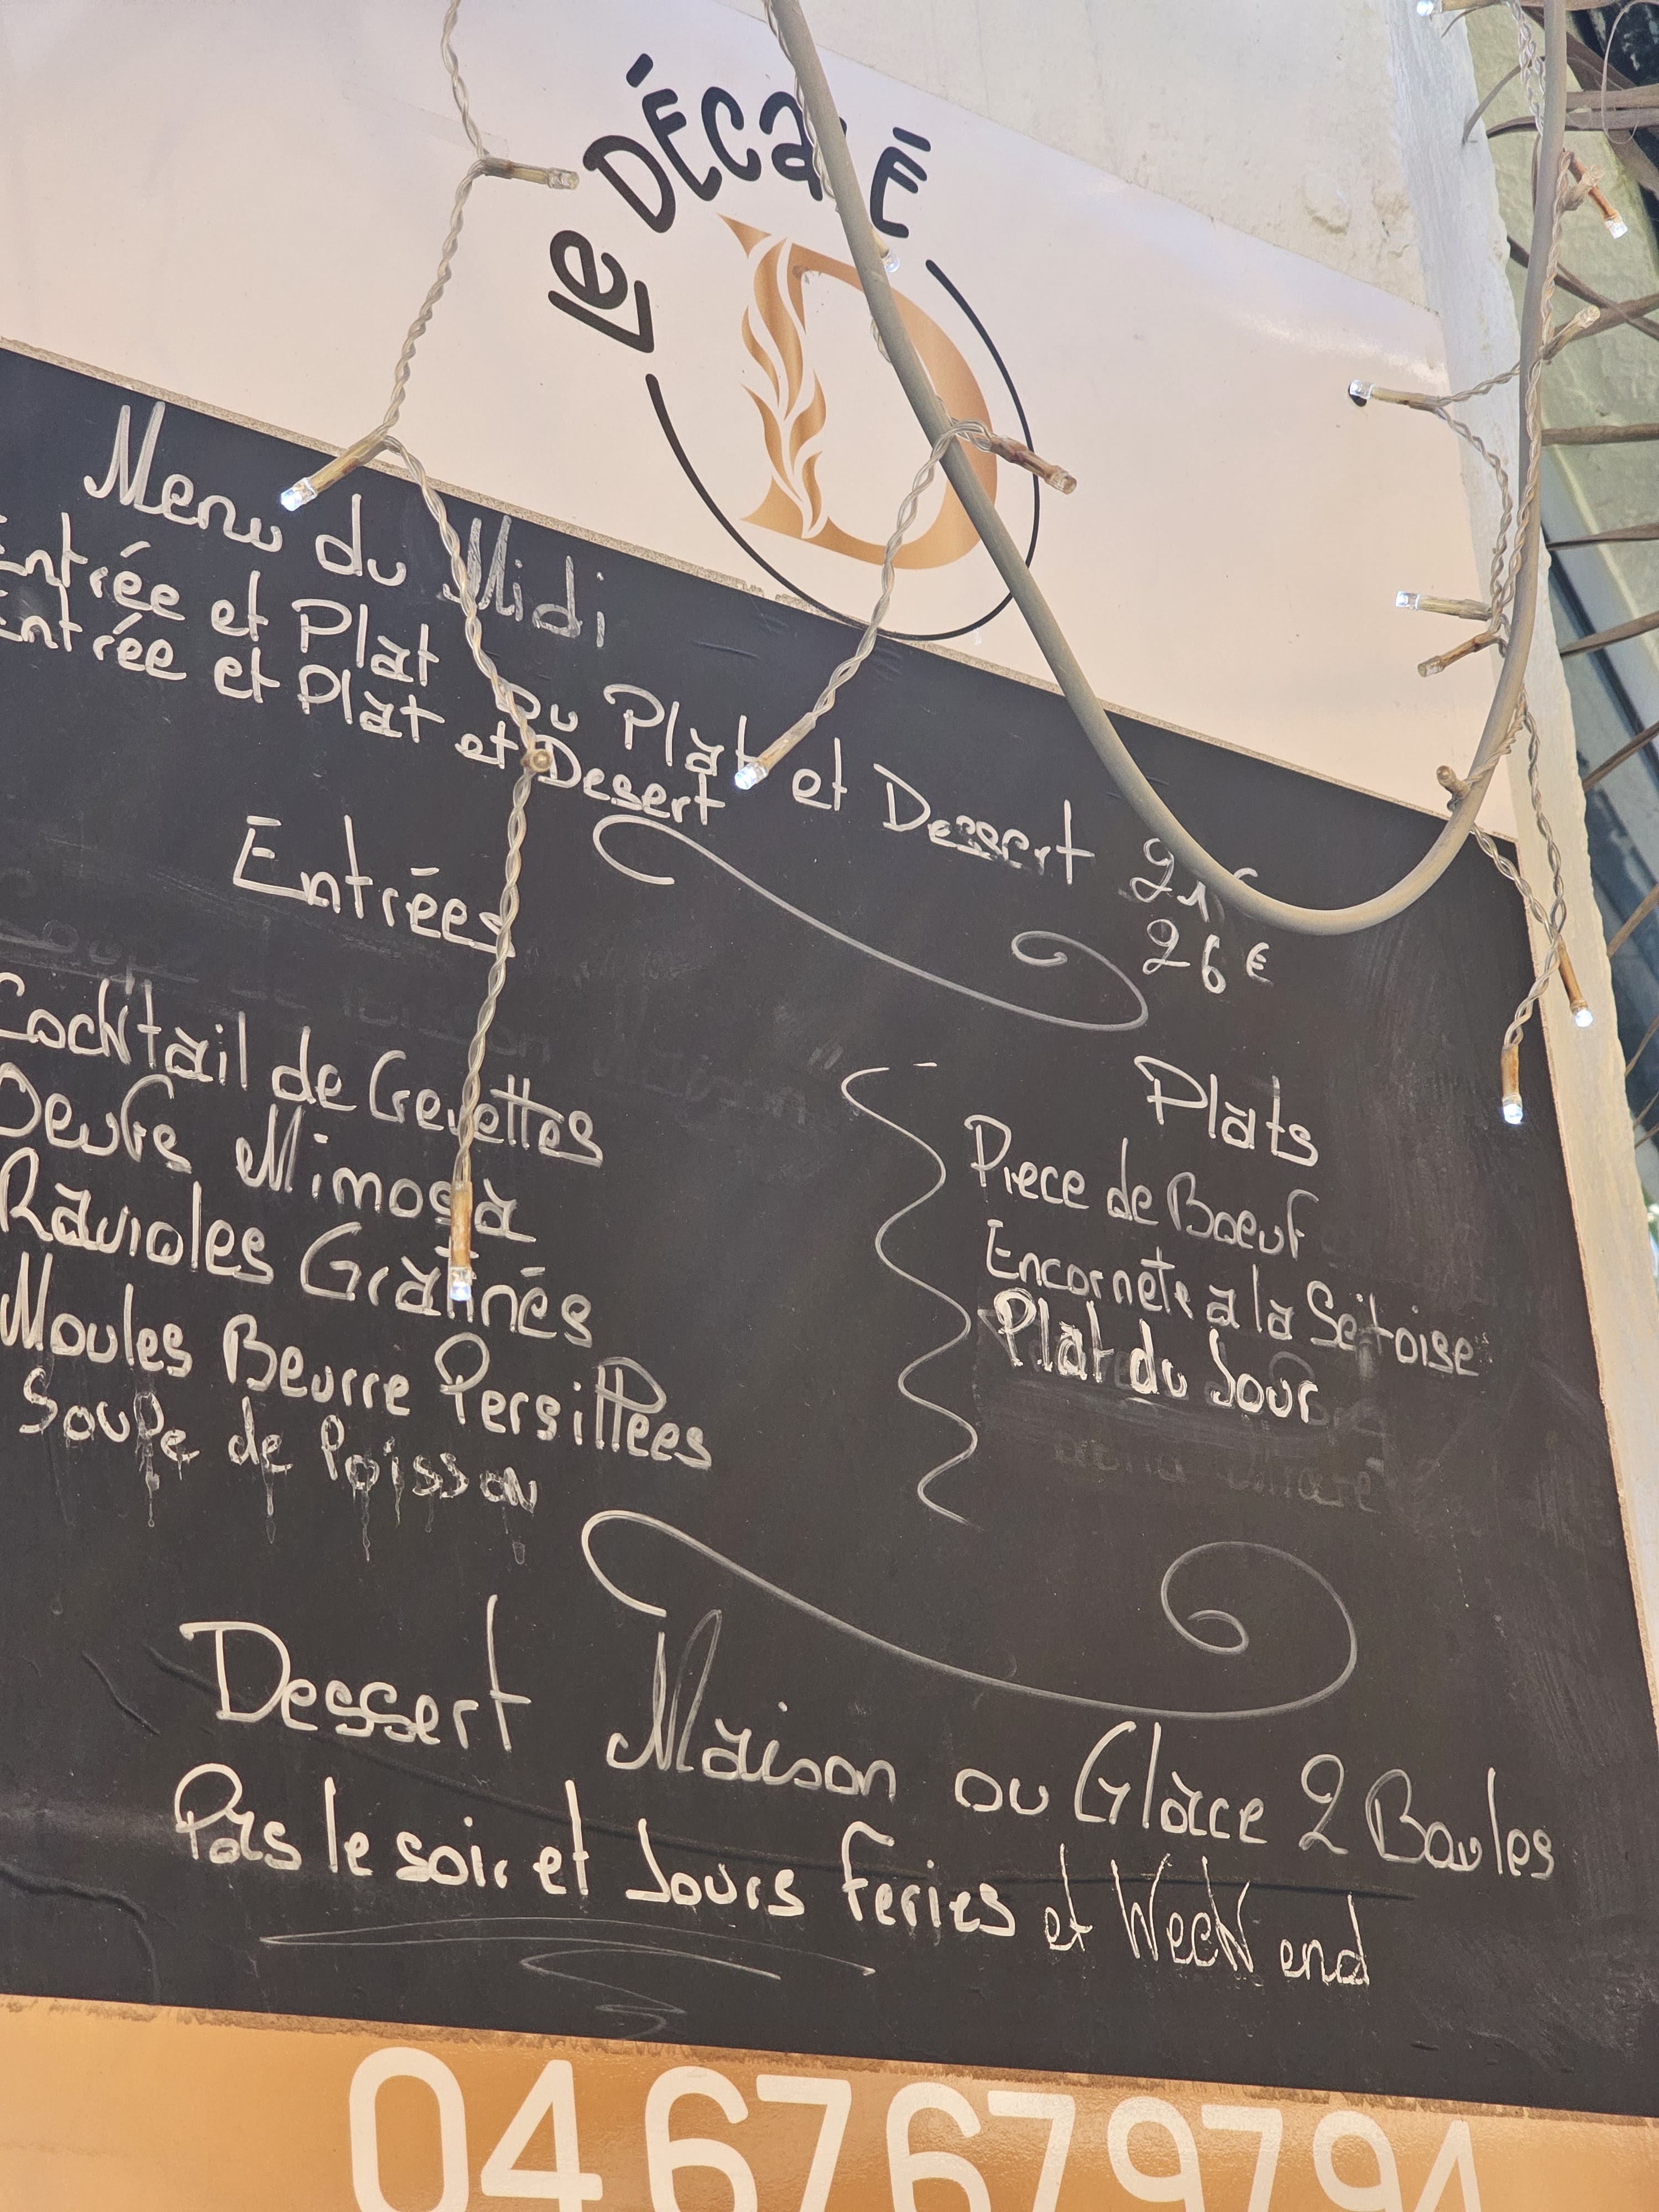 Le DÉCALÉ
Menu du Midi
Entrée et Plat ou Plat et Dessert 21€
Entrée et Plat et Desert 26€
Entrées
Cocktail de Crevettes
Oeufs Mimosa
Ravioles Gratinés
Moules Beurre Persillées
Soupe de Poisson
Plats
Piece de Boeuf
Encornets a la Setoise
Plat du Jour
Dessert Maison ou Glace 2 Boules
Pas le soir et Jours Feries et Week end
04 67679794